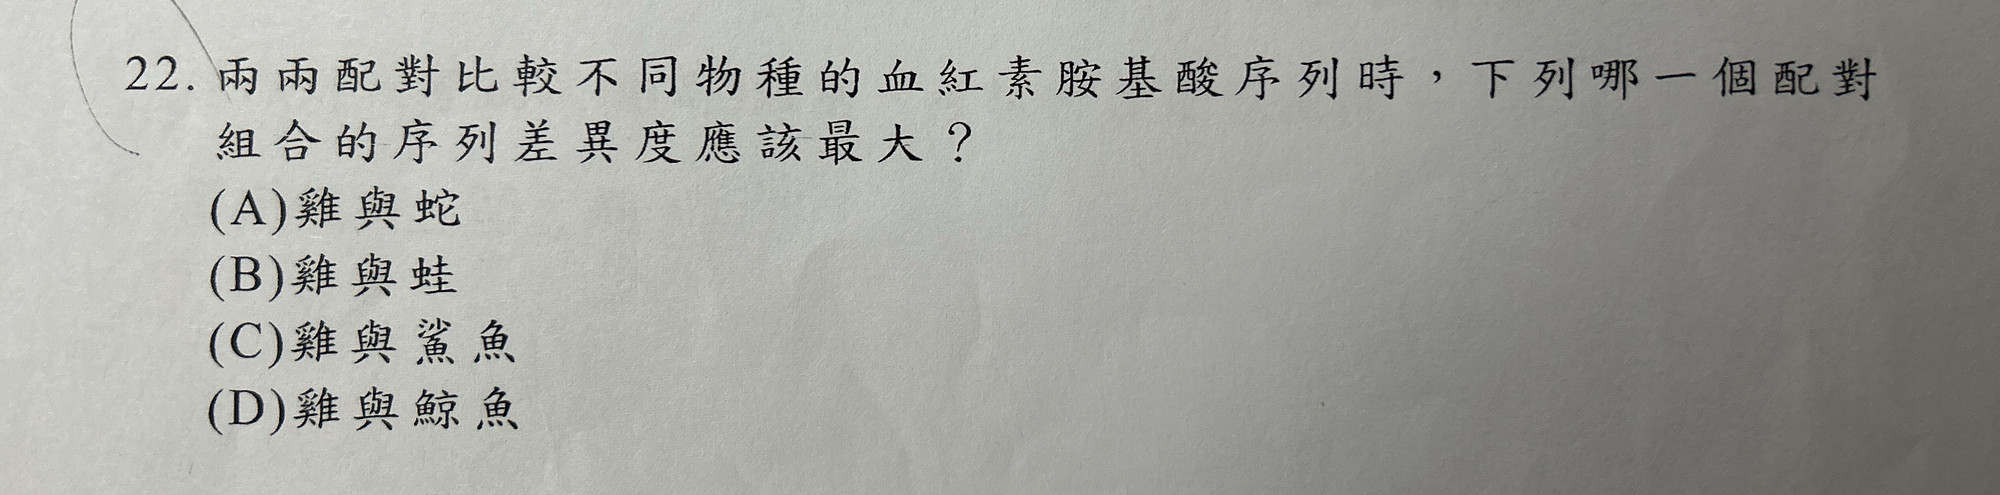 22. 兩兩配對比較不同物種的血紅素胺基酸序列時，下列哪一個配對
組合的序列差異度應該最大？
(A)雞與蛇
(B)雞與蛙
(C)雞與鯊魚
(D)雞與鯨魚